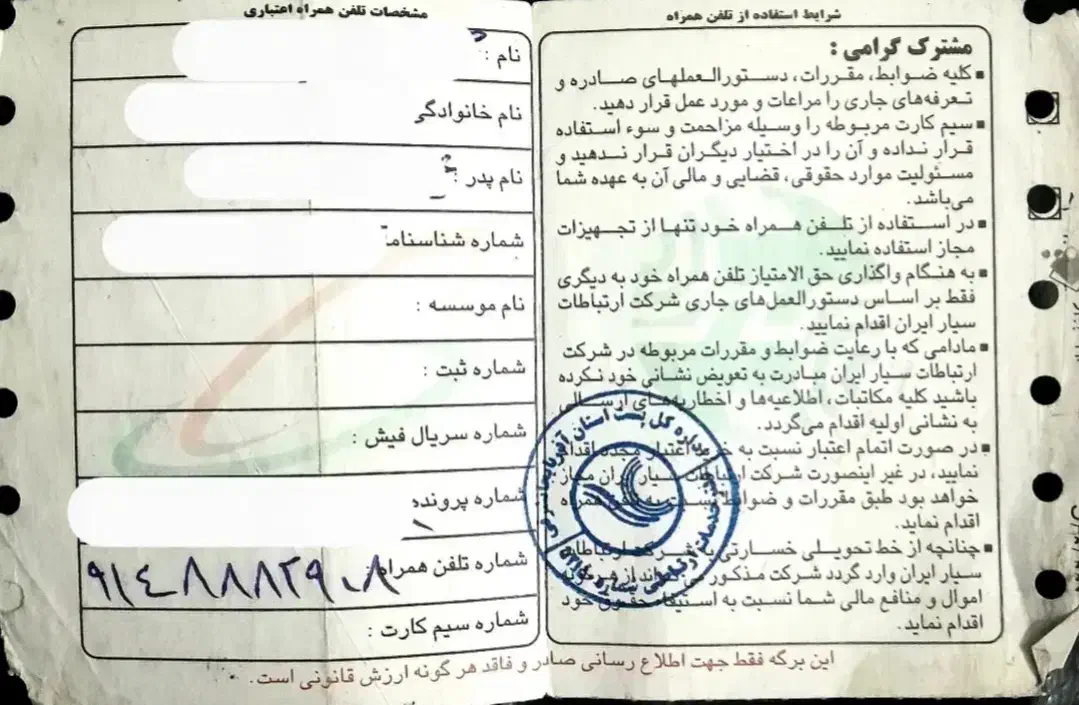 شرایط استفاده از تلفن همراه
مشترک گرامی :
▪ کلیه ضوابط، مقررات، دستورالعملهای صادره و
تعرفه‌های جاری را مراعات و مورد عمل قرار دهید.
▪ سیم کارت مربوطه را وسیله مزاحمت و سوء استفاده
قرار نداده و آن را در اختیار دیگران قرار ندهید و
مسئولیت موارد حقوقی، قضایی و مالی آن به عهده شما
می‌باشد.
▪ در استفاده از تلفن همراه خود تنها از تجهیزات
مجاز استفاده نمایید.
▪ به هنگام واگذاری حق الامتیاز تلفن همراه خود به دیگری
فقط بر اساس دستورالعمل‌های جاری شرکت ارتباطات
سیار ایران اقدام نمایید.
▪ مادامی که با رعایت ضوابط و مقررات مربوطه در شرکت
ارتباطات سیار ایران مبادرت به تعویض نشانی خود نکرده
باشید کلیه مکاتبات، اطلاعیه‌ها و اخطاریه‌های ارسالی
به نشانی اولیه اقدام می‌گردد.
▪ در صورت اتمام اعتبار نسبت به خرید اعتبار مجدد اقدام
نمایید، در غیر اینصورت شرکت ارتباطات سیار ایران مجاز
خواهد بود طبق مقررات و ضوابط نسبت به تلفن همراه
اقدام نماید.
▪ چنانچه از خط تحویلی خسارتی به شرکت ارتباطات
سیار ایران وارد گردد شرکت مذکور می‌تواند از هرگونه
اموال و منافع مالی شما نسبت به استیفاء حقوق خود
اقدام نماید.
اداره کل پست استان آذربایجان شرقی
مشخصات تلفن همراه اعتباری
نام :
نام خانوادگی
نام پدر :
شماره شناسنامه
نام موسسه :
شماره ثبت :
شماره سریال فیش :
شماره پرونده
شماره تلفن همراه: ۹۱۴۸۸۸۲۹۰۸
شماره سیم کارت :
این برگه فقط جهت اطلاع رسانی صادر و فاقد هر گونه ارزش قانونی است.